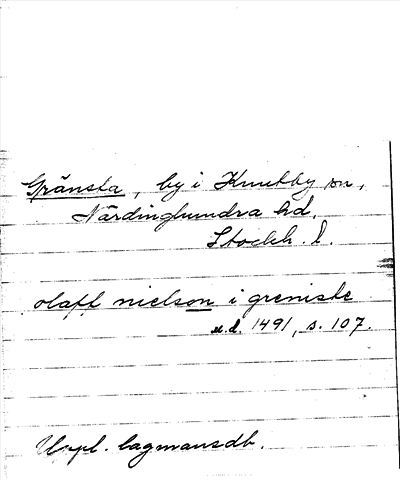 Gränsta, by i Knutby sn,
Närdinghundra hd.
Stockh. l.
olaff nielson i greniste
u.d. 1491, s. 107.
Uppl. lagmansdb.